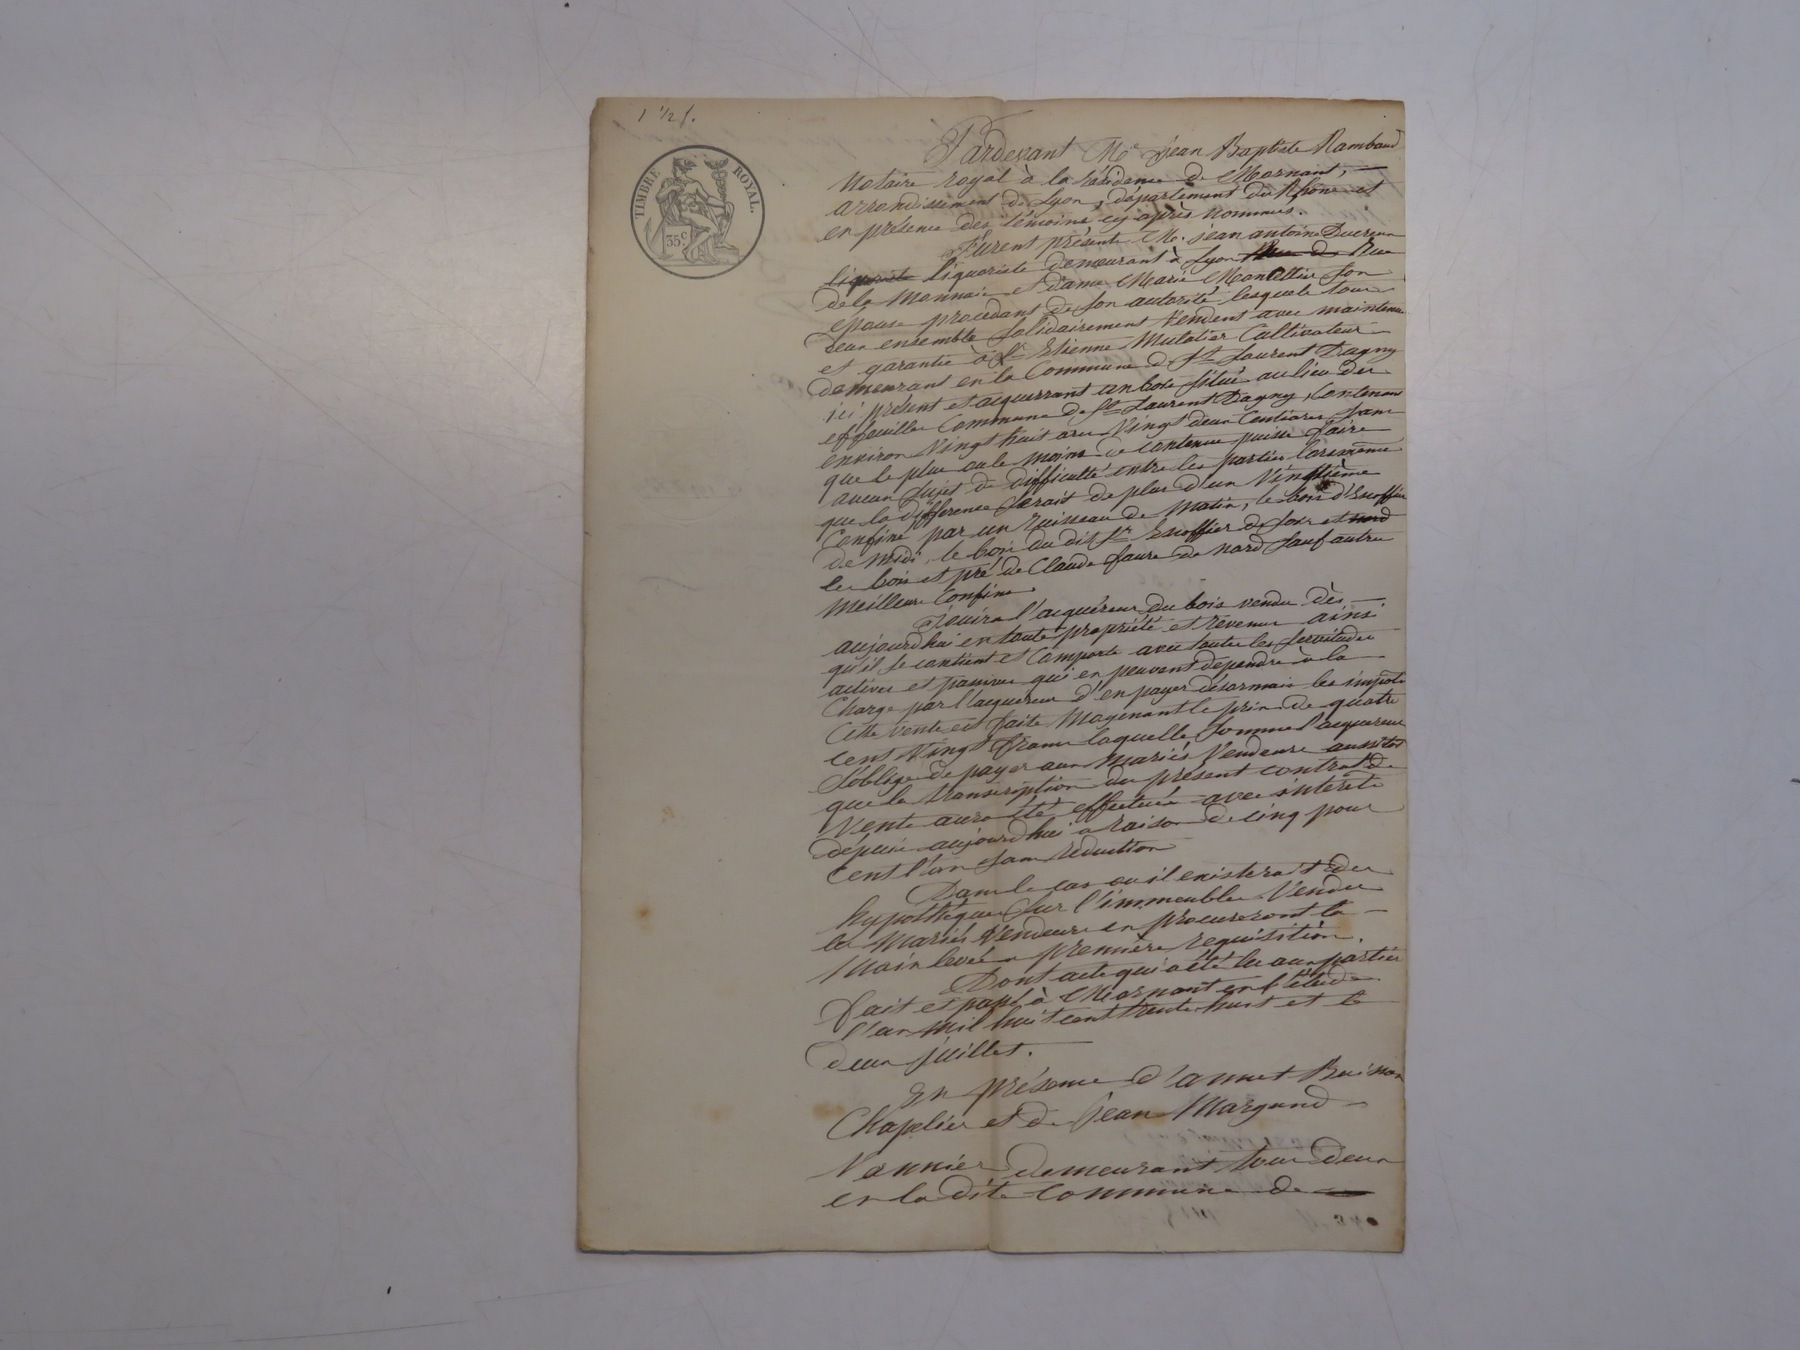 1 1/2 f.
TIMBRE ROYAL.
35 c.
Pardevant Me Jean Baptiste Rambaud
Notaire royal à la résidence de Mornant,
arrondissement de Lyon, département du Rhône et
en présence des témoins cy après nommés.
Furent présents Mr. jean antoine Ducreux
liquoriste demeurant à Lyon Rue
de la Monnaie et dame Marie Montellier son
épouse procedant de son autorité lesquels tous
deux ensemble solidairement vendent avec maintenue
et garantie à Sr. Etienne Mutatier Cultivateur
demeurant en la Commune de St Laurent Dagny
ici présent et acquerrant un bois situé au lieu des
effeuilles Commune de St. Laurent Dagny, Contenant
environ Vingt huit ares Vingt deux Centiares sans
que le plus ou le moins de contenue puisse faire
aucun sujet de difficulté entre les parties lors même
que la différence serait de plus d'un Vingtième
Confiné par un ruisseau de matin, le bois d'Escoffier
de midi, le bois du dit Sr Escoffier de soir et nord
les bois et pré de Claude faure de nord sauf autres
meilleurs Confins.
Jouira l'acquéreur du bois vendu dès
aujourdhui en toute propriété et revenus ainsi
qu'il se contient et Comporte avec toutes les servitudes
actives et passives qui en peuvent dépendre à la
Charge par l'acquereur d'en payer désormais les impots
Cette vente est faite Moyenant le prix de quatre
cent Vingt francs laquelle somme l'acquereur
s'oblige de payer aux mariés Vendeurs aussitot
que la transcription du présent contrat de
Vente aura été effectuée avec intérêts
depuis aujourdhui a raison de cinq pour
Cent l'an sans reduction
Dans le cas ou il existerait des
hypothèques sur l'immeuble Vendu
les mariés Vendeurs en procureront la
Main levée a première requisition.
Dont acte qui a été lu aux parties
fait et passé à Mornant en l'étude
l'an mil huit cent trente huit et le
deux juillet.
En présence d'annet Buisson
Chapelier et de Jean Margand
Vannier demeurant tous deux
en la dite Commune de